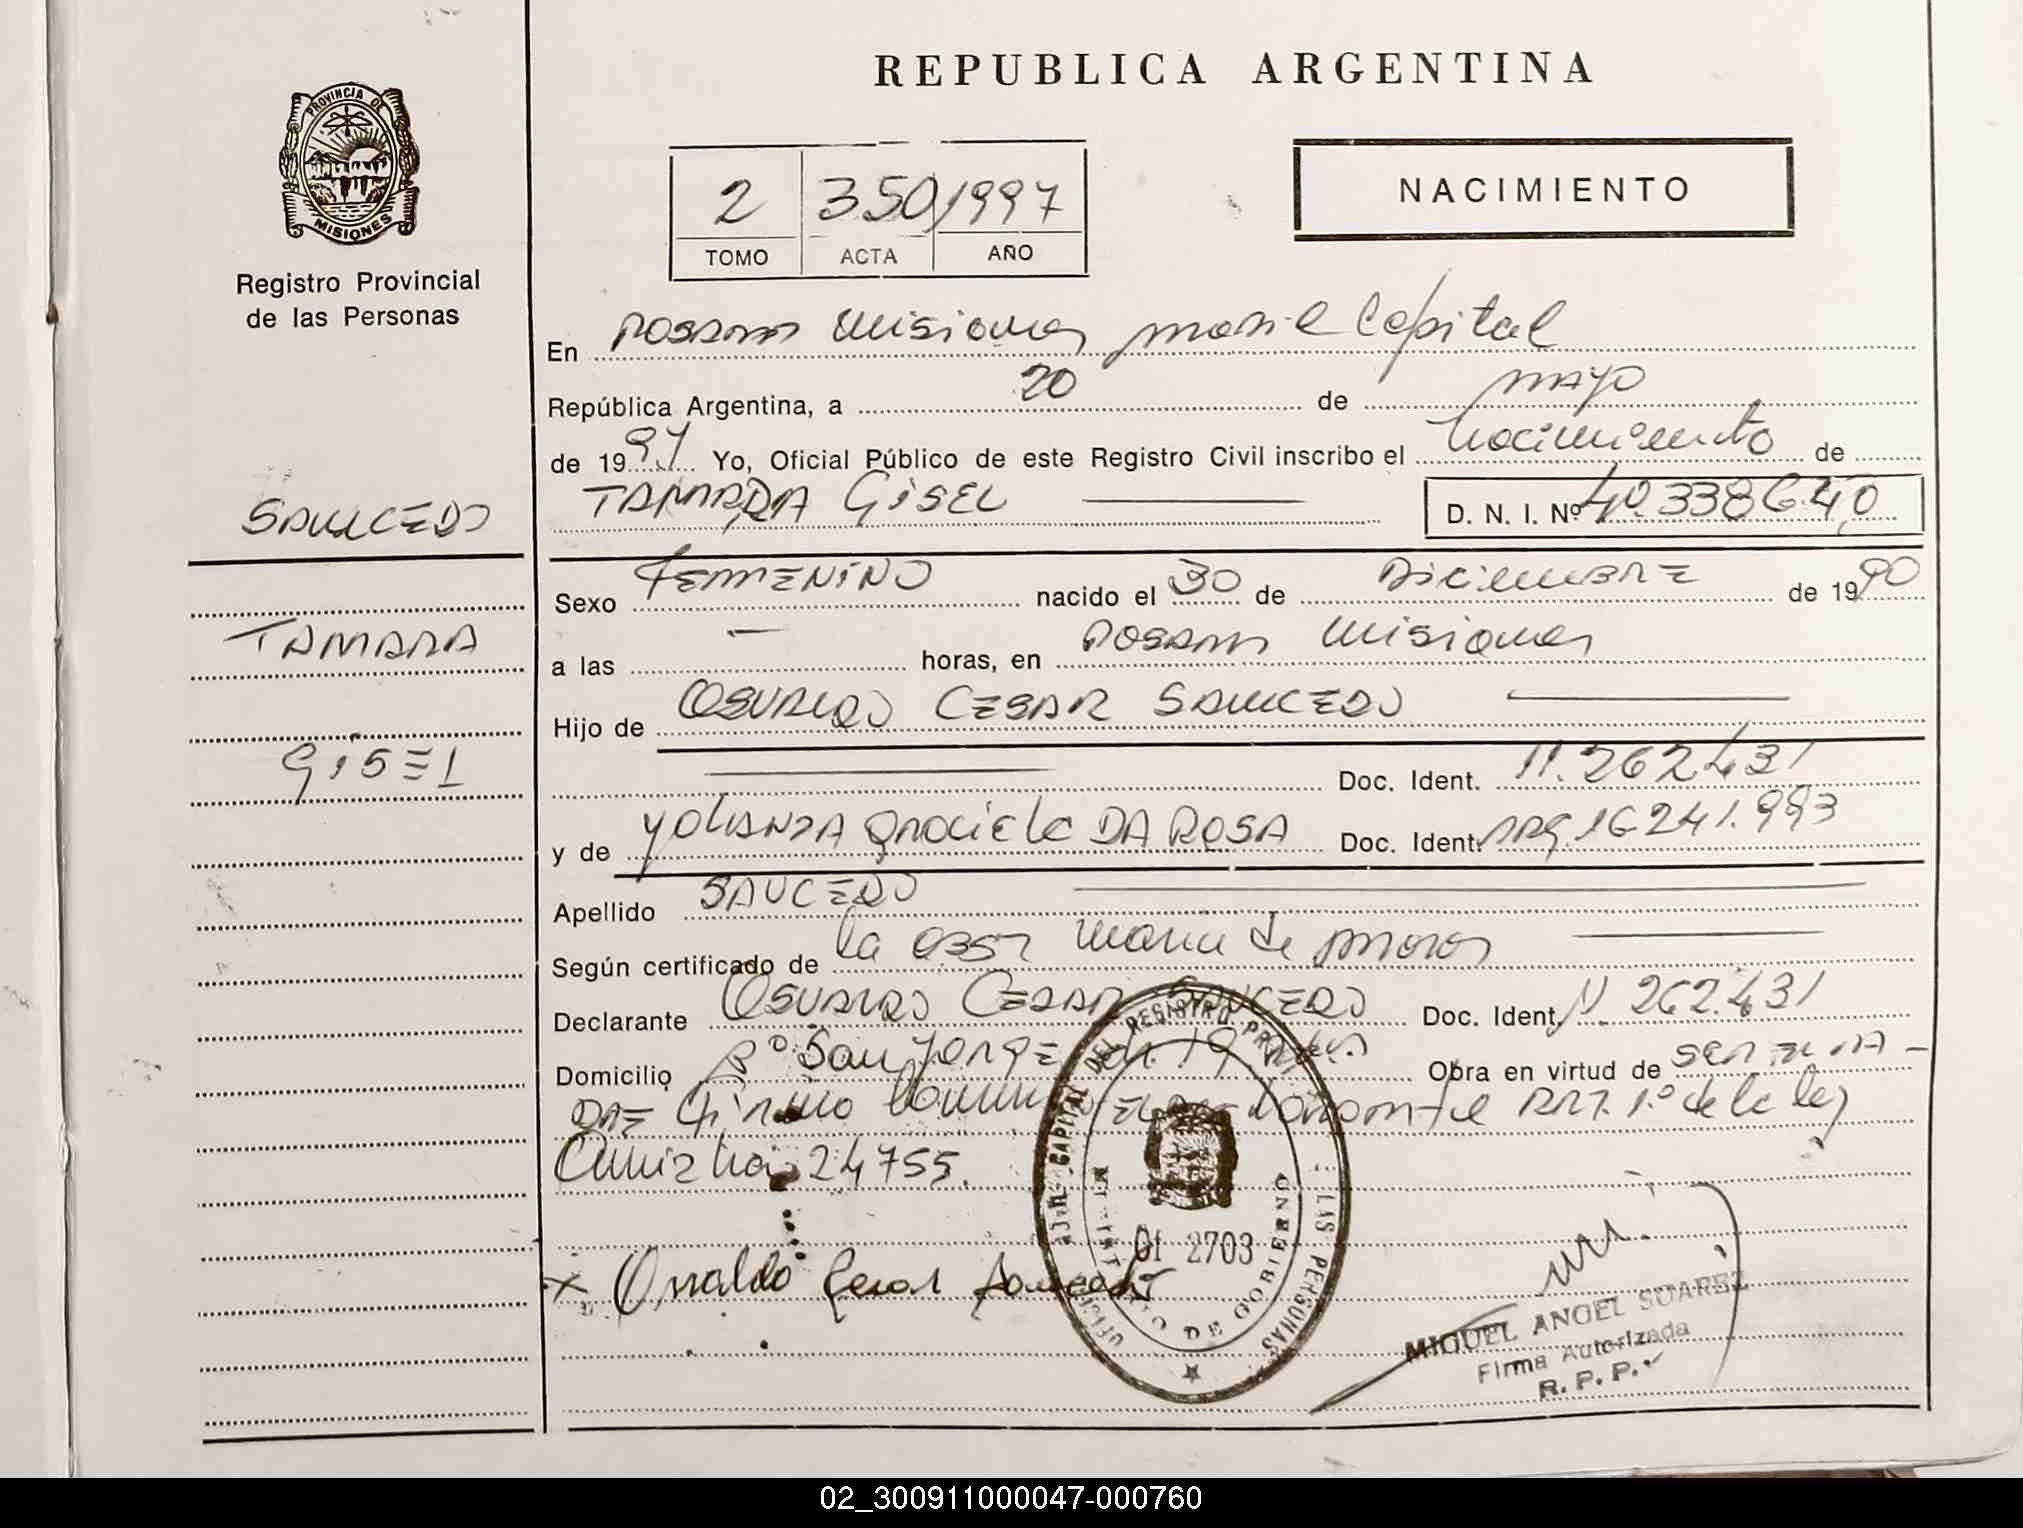 REPUBLICA ARGENTINA
PROVINCIA DE
MISIONES
Registro Provincial
de las Personas
2 350/1997
TOMO ACTA AÑO
NACIMIENTO
En Posadas Misiones Capital
República Argentina, a 20 de mayo
de 1997 Yo, Oficial Público de este Registro Civil inscribo el Nacimiento de
TAMARA GISEL D. N. I. Nº 40.338.640
SAUCEDO
TAMARA
GISEL
Sexo FEMENINO nacido el 30 de Diciembre de 1990
a las — horas, en Posadas Misiones
Hijo de OSVALDO CESAR SAUCEDO
Doc. Ident. 11.262.431
y de YOLANDA Graciela DA ROSA Doc. Ident. Arg. 16.241.993
Apellido SAUCEDO
Según certificado de la
Declarante OSVALDO CESAR SAUCEDO Doc. Ident. 11.262.431
Domicilio Bº San Jorge Obra en virtud de
Art. 1º de la ley
24755.
x Osvaldo Cesar Saucedo
CAPITAL DEL REGISTRO LAS PERSONAS
DE GOBIERNO
01 2703
MIGUEL ANGEL SUAREZ
Firma Autorizada
R. P. P.
02_300911000047-000760